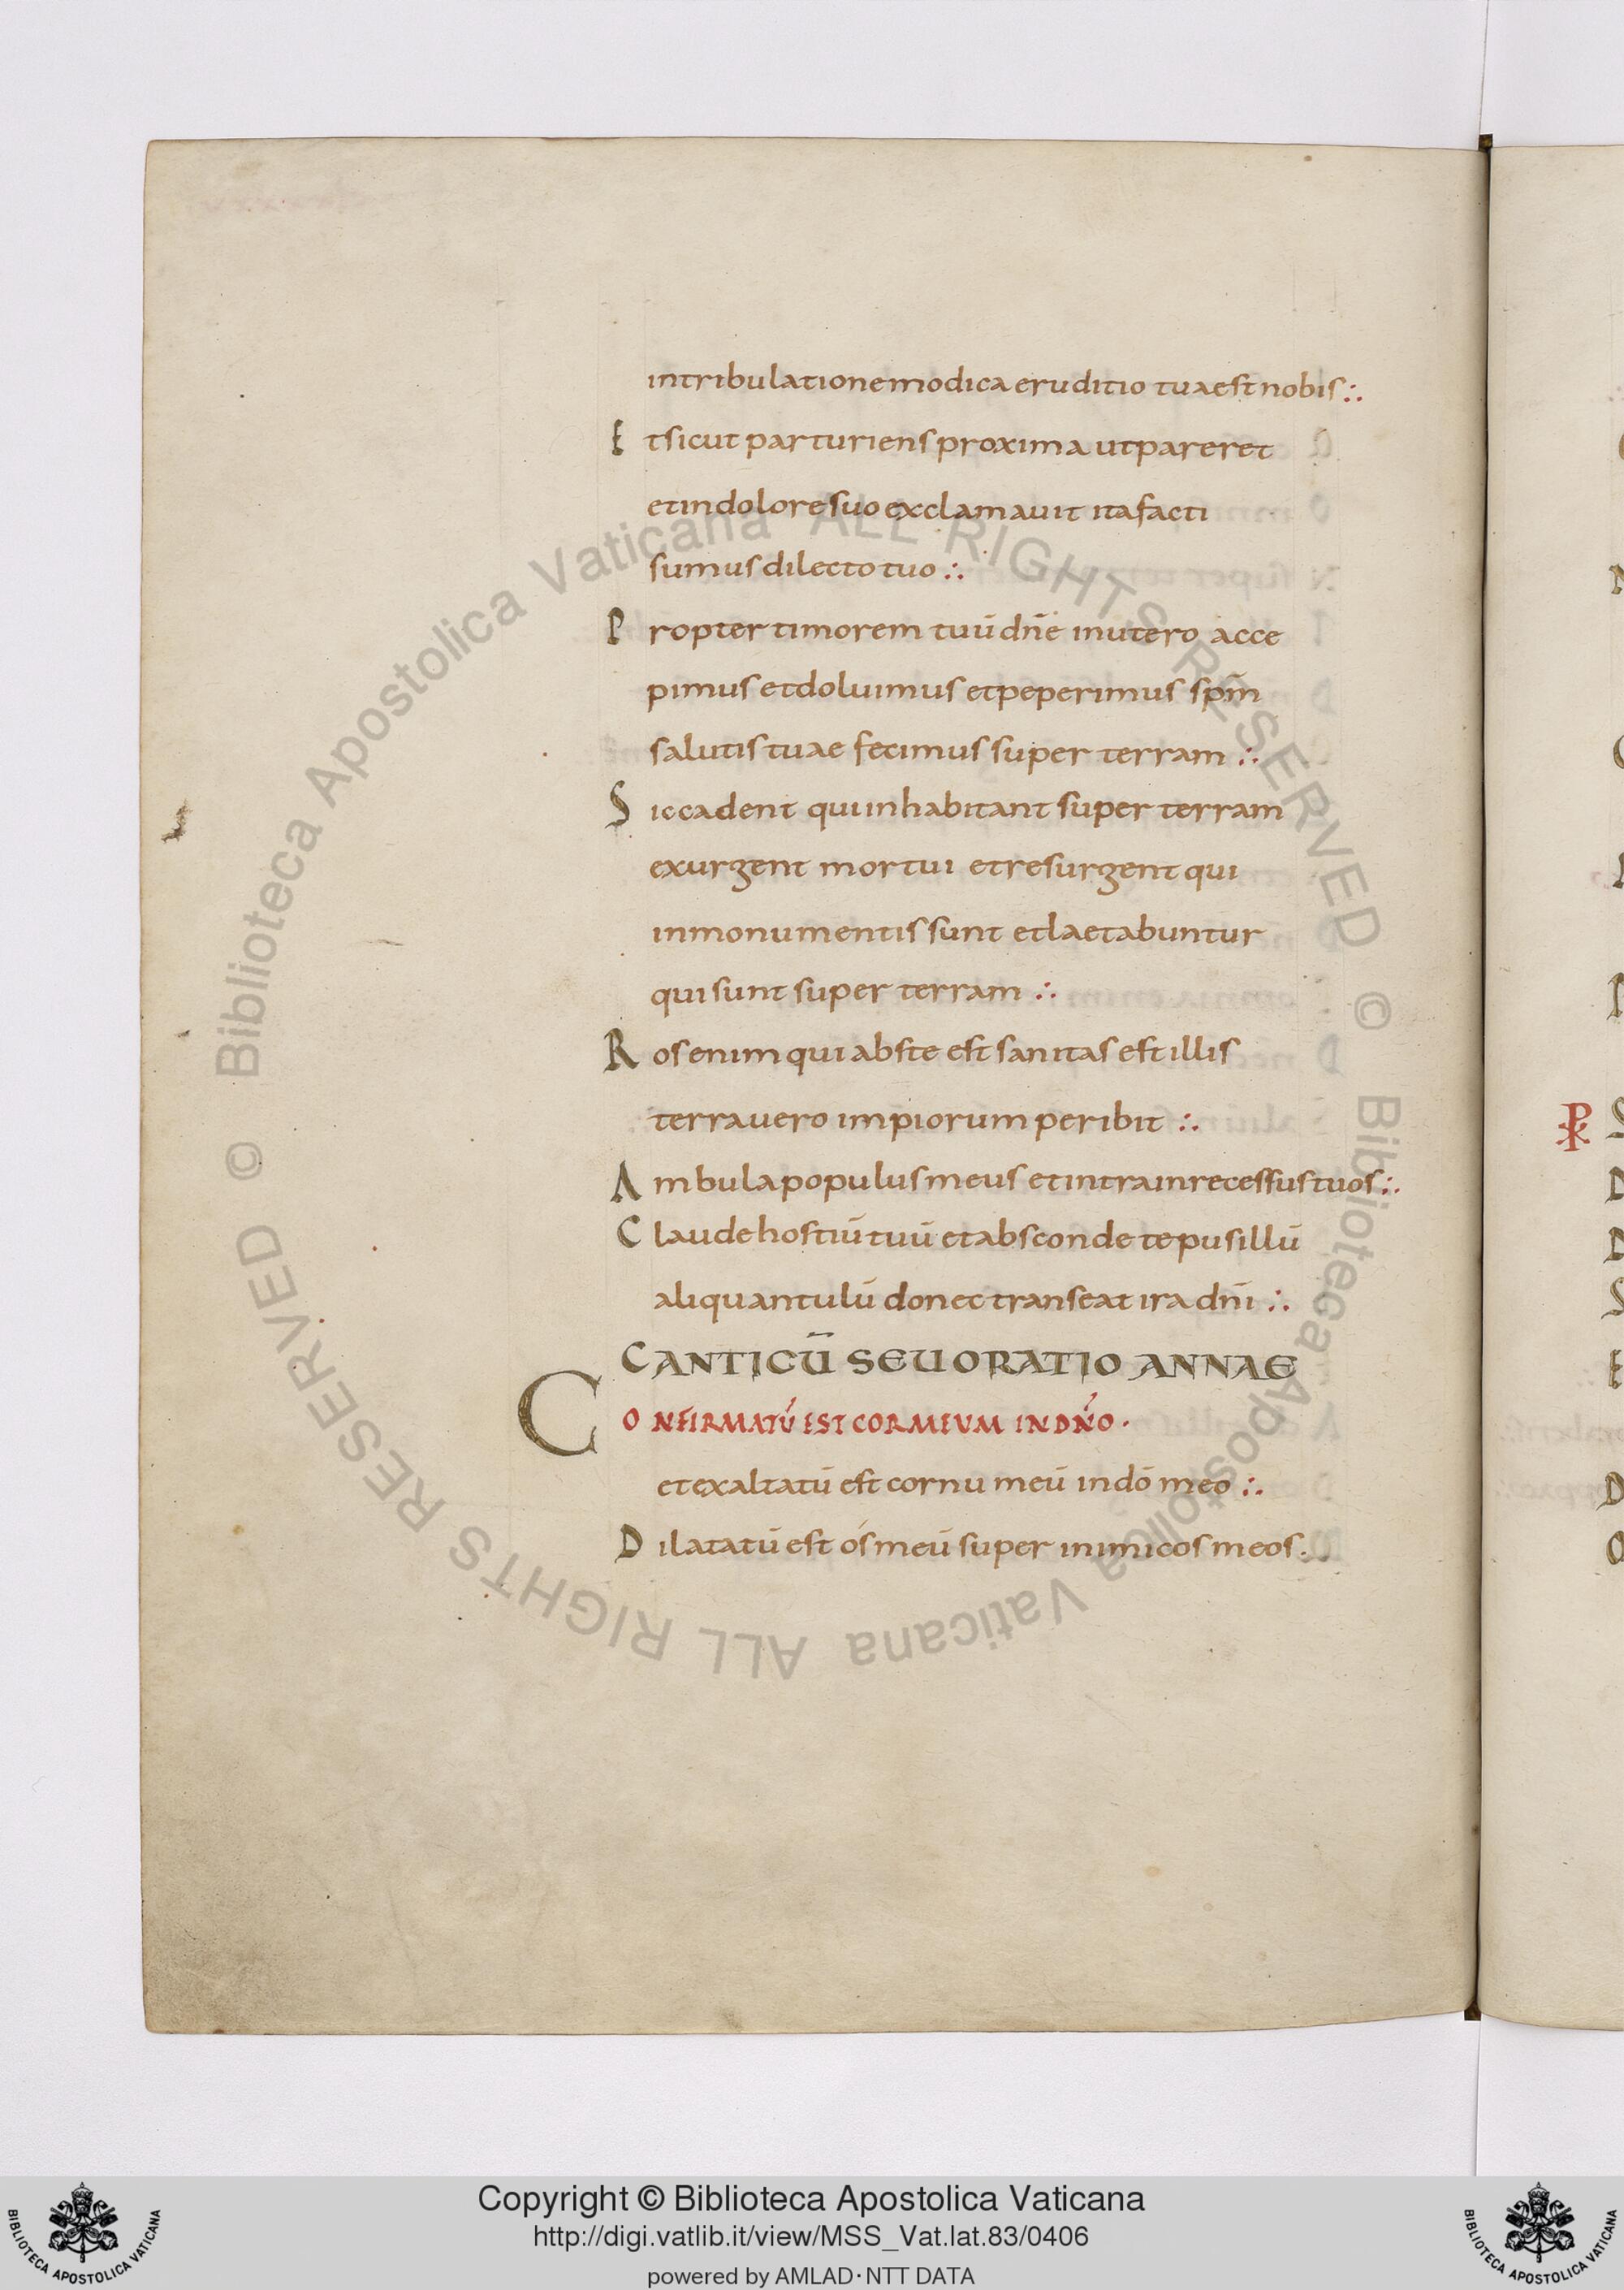 intribulationemodica eruditio tuaest nobis ∴
Et sicut parturiens proxima utpareret
etindoloresuo exclamauit itafacti
sumus dilecto tuo ∴
Propter timorem tuū dn̄e inutero acce
pimus etdoluimus etpeperimus sp̄m
salutis tuae fecimus super terram ∴
Siccadent quiinhabitant super terram
exurgent mortui etresurgent qui
inmonumentis sunt etlaetabuntur
qui sunt super terram ∴
Ros enim qui abste est sanitas est illis
terra uero impiorum peribit ∴
Ambula populus meus etintrainrecessus tuos ∴
Claude hostiū tuū etabsconde te pusillū
aliquantulū donec transeat ira dn̄i ∴
CANTICŪ SEU ORATIO ANNAE
CONFIRMATŪ EST COR MEVM IN DN̄O ·
etexaltatū est cornu meū indō meo ∴
Dilatatū est ós meū super inimicos meos ∴
© Biblioteca Apostolica Vaticana ALL RIGHTS RESERVED © Biblioteca Apostolica Vaticana ALL RIGHTS RESERVED
Copyright © Biblioteca Apostolica Vaticana
http://digi.vatlib.it/view/MSS_Vat.lat.83/0406
powered by AMLAD·NTT DATA
BIBLIOTECA APOSTOLICA VATICANA
BIBLIOTECA APOSTOLICA VATICANA